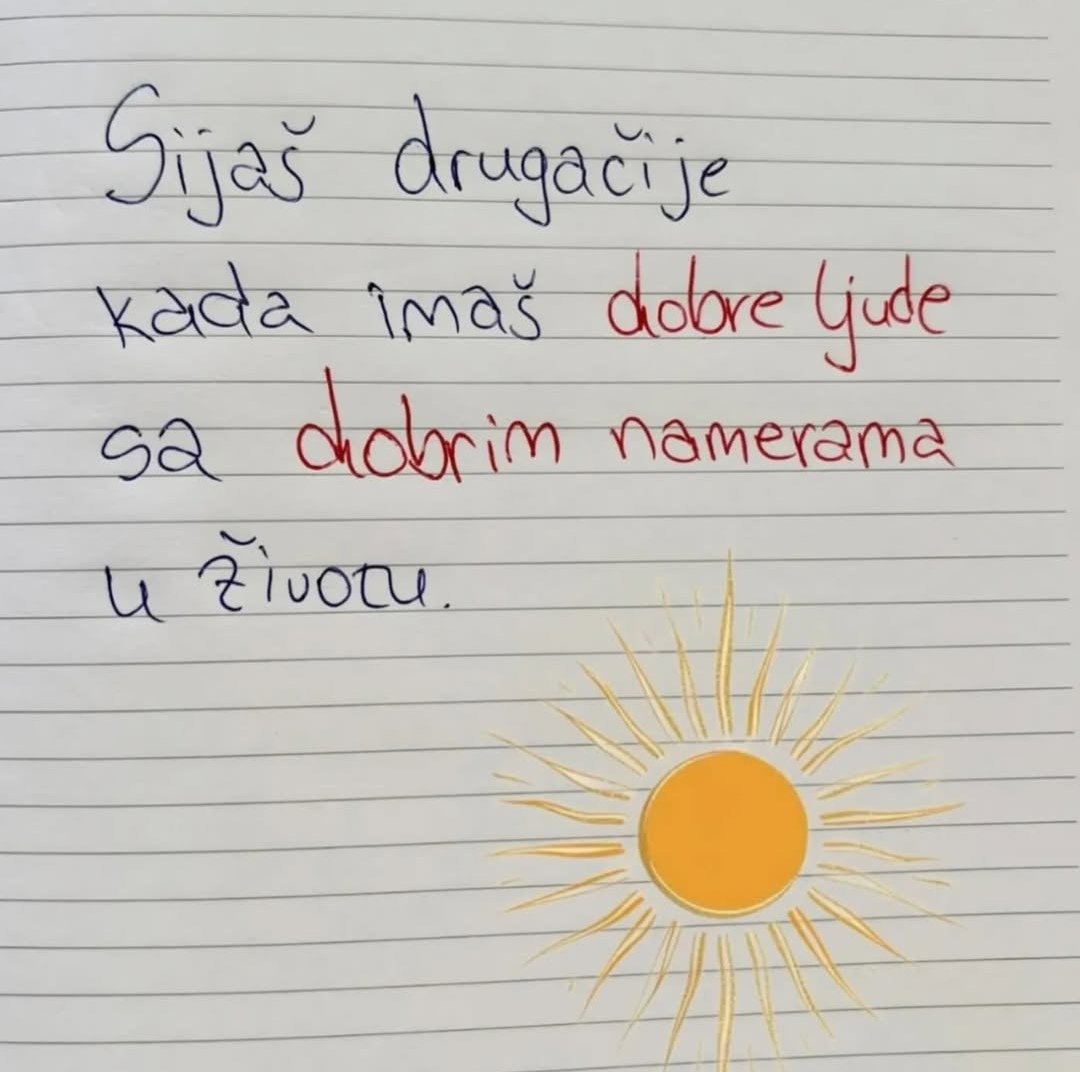 Sijaš drugačije
kada imaš dobre ljude
sa dobrim namerama
u životu.